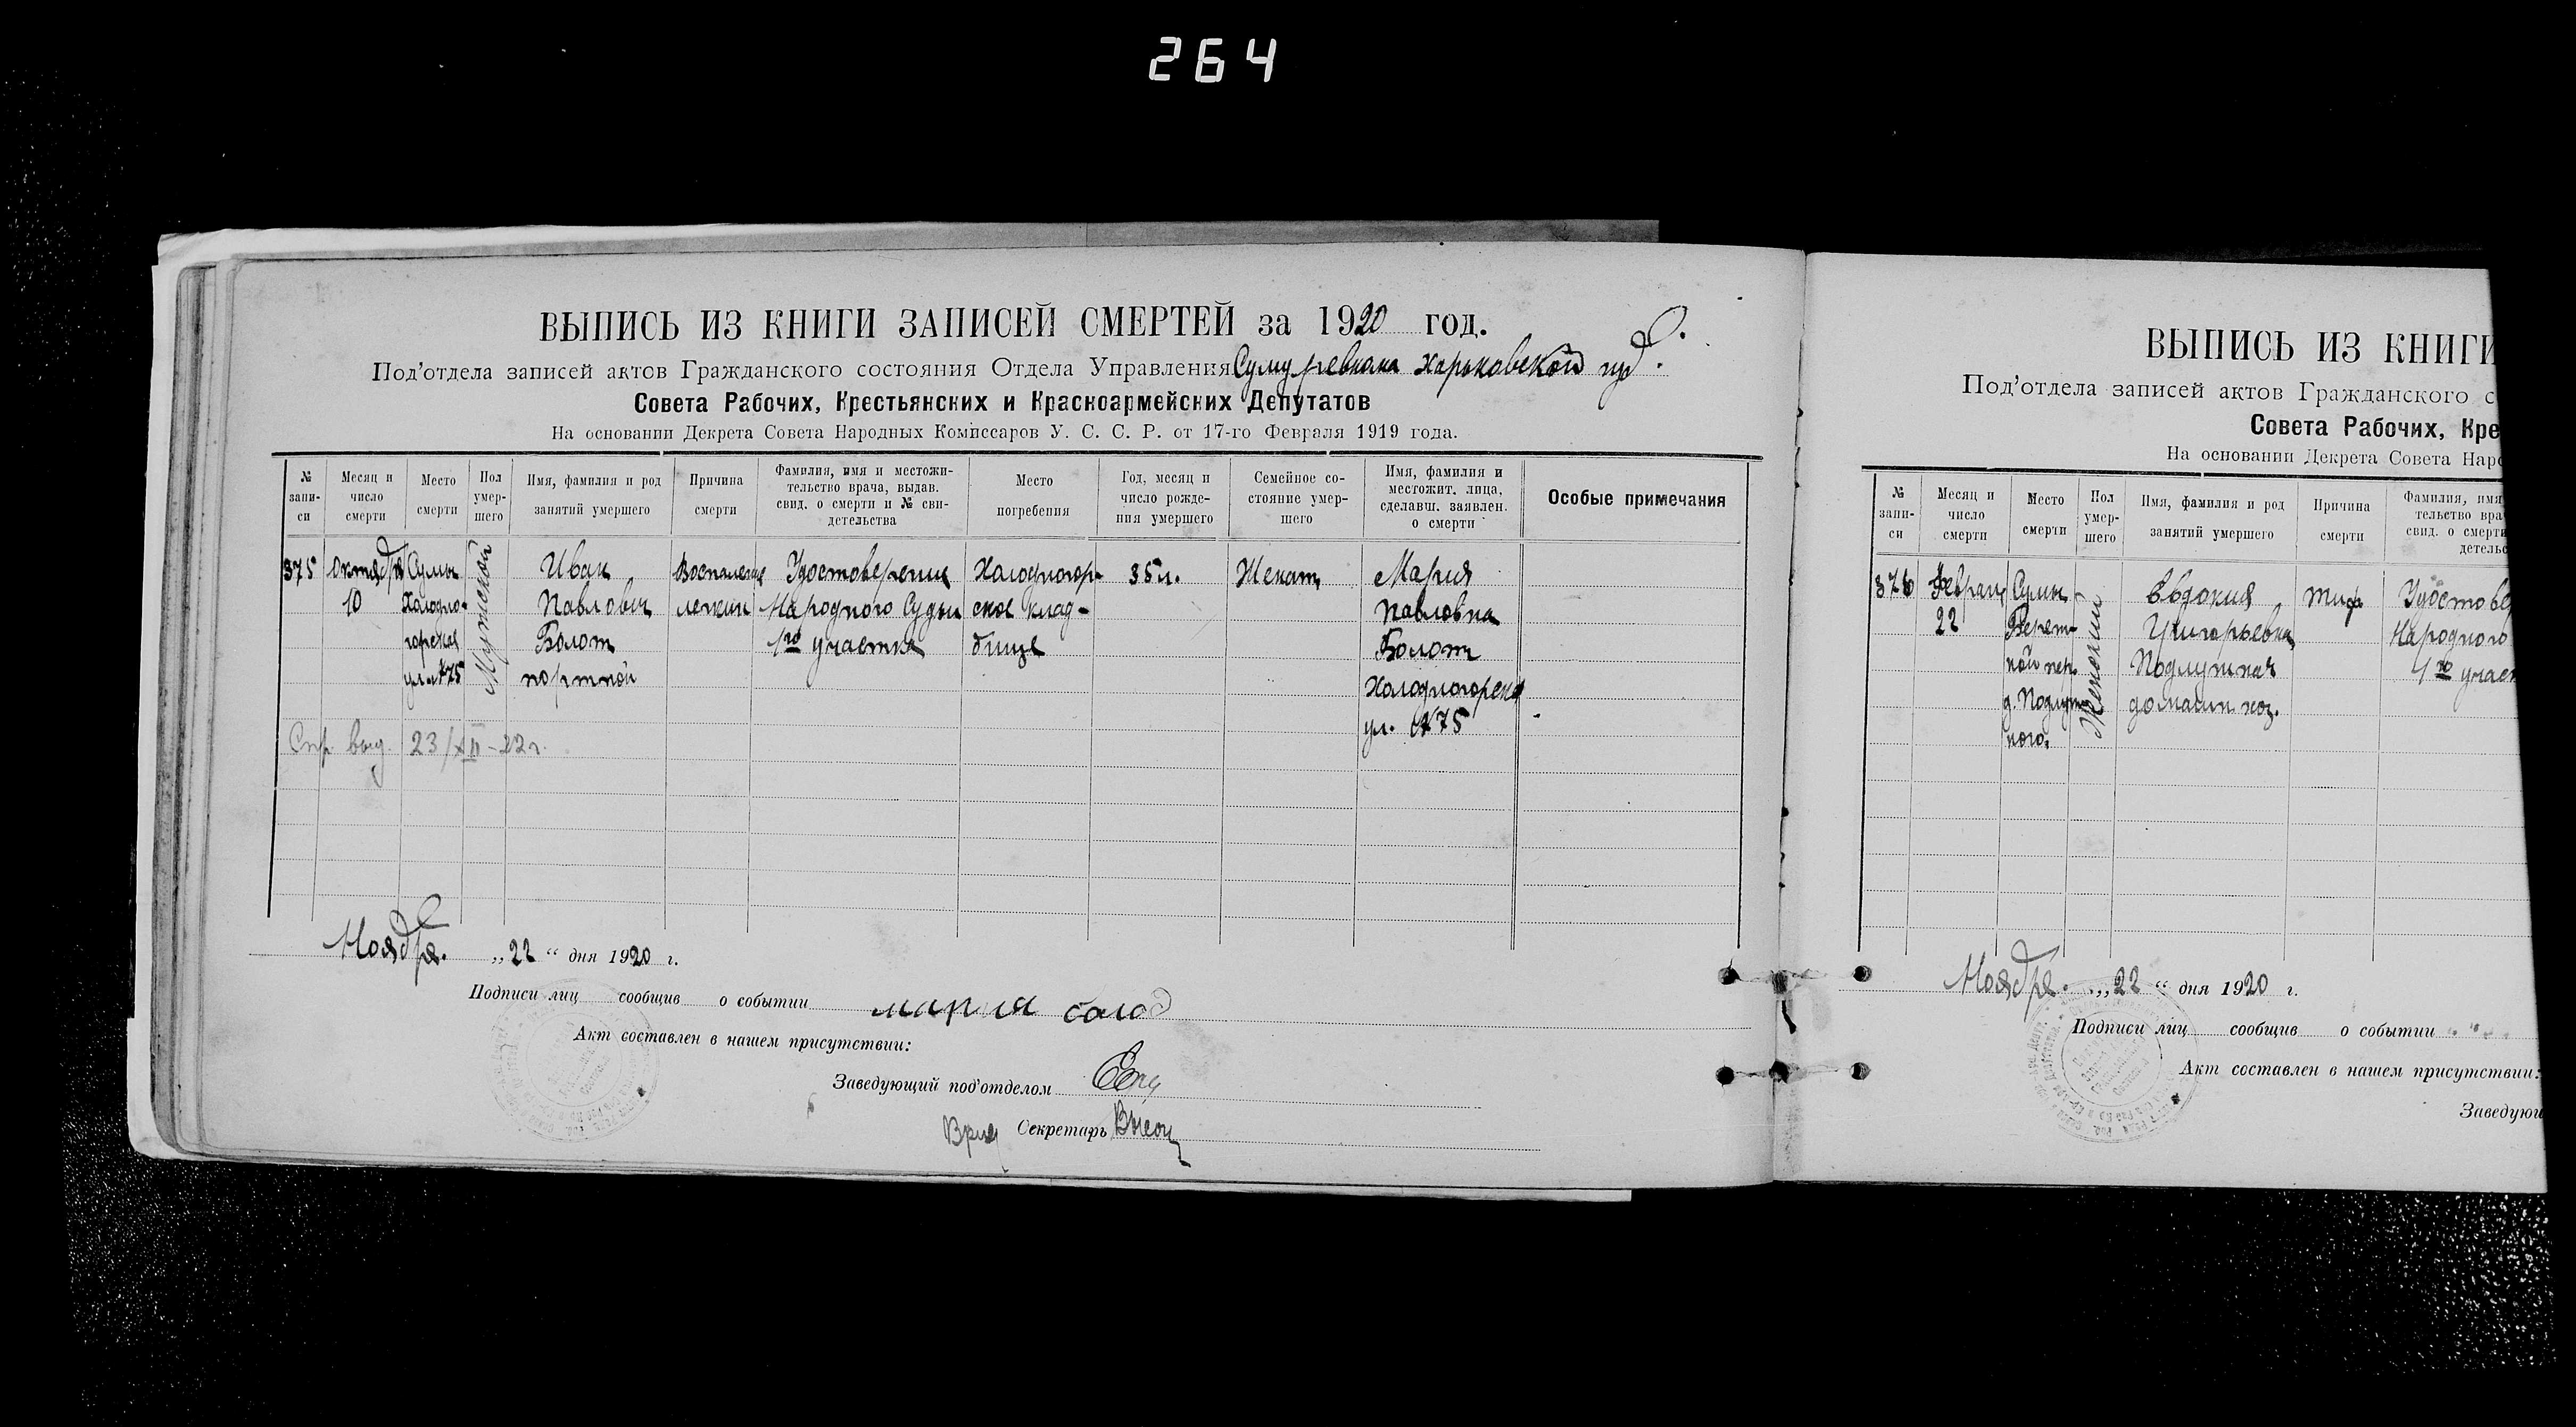 264
ВЫПИСЬ ИЗ КНИГИ ЗАПИСЕЙ СМЕРТЕЙ за 1920 год.
Под'отдела записей актов Гражданского состояния Отдела Управления Сумур ревкома Харьковской губ.
Совета Рабочих, Крестьянских и Красноармейских Депутатов
На основании Декрета Совета Народных Комиссаров У. С. С. Р. от 17-го Февраля 1919 года.
№ запи-си
Месяц и число смерти
Место смерти
Пол умер-шего
Имя, фамилия и род занятий умершего
Причина смерти
Фамилия, имя и местожи-тельство врача, выдав. свид. о смерти и № сви-детельства
Место погребения
Год, месяц и число рожде-ния умершего
Семейное со-стояние умер-шего
Имя, фамилия и местожит. лица, сделавш. заявлен. о смерти
Особые примечания
375
Октября
10
Сумы
Холодно-
горская
ул. №75
Мужской
Иван
Павлович
Болот
портной
Воспаление
легких
Удостоверение
Народного Судьи
1го участка
Холодногор-
ское клад-
бище
35 л.
Женат
Мария
Павловна
Болот
Холодногорск
ул. №75
Спр. выд. 23/XII-22 г.
Ноября. „22“ дня 1920 г.
Подписи лиц сообщив о событии мария болод
Акт составлен в нашем присутствии:
Заведующий под'отделом
Врид Секретарь
ВЫПИСЬ ИЗ КНИГИ
Под'отдела записей актов Гражданского с
Совета Рабочих, Кре
На основании Декрета Совета Наро
№ запи-си
Месяц и число смерти
Место смерти
Пол умер-шего
Имя, фамилия и род занятий умершего
Причина смерти
Фамилия, имя
тельство вра
свид. о смерти
детельс
376
Феврал
22
Сумы
Верет-
ной пер.
д. Подлуж-
ного.
Женский
Евдокия
Григорьевна
Подлужная
домашн. хоз.
Тиф
Удостове
Народного
1го участ
Ноября. „22“ дня 1920 г.
Подписи лиц сообщив о событии
Акт составлен в нашем присутствии:
Заведую